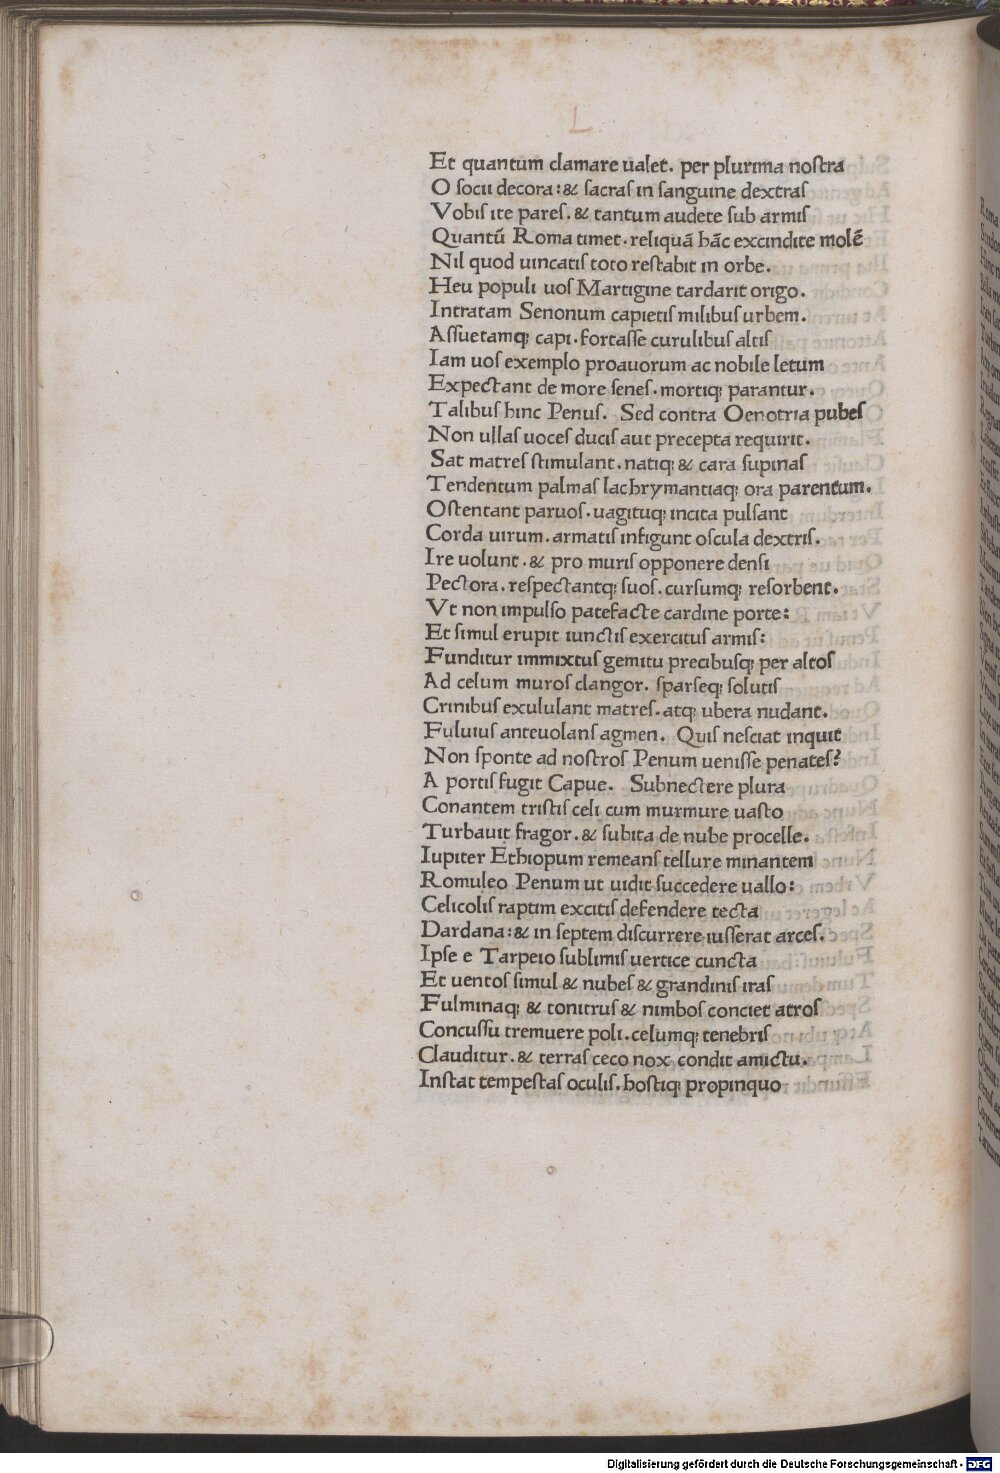 L
Et quantum clamare ualet. per plurima noſtra
O ſocii decora: & ſacraſ in ſanguine dextraſ
Vobiſ ite pareſ. & tantum audete ſub armiſ
Quantū Roma timet. reliquā hāc excindite molē
Nil quod uincatiſ toto reſtabit in orbe.
Heu populi uoſ Martigine tardarit origo.
Intratam Senonum capietiſ milibuſ urbem.
Aſſuetamq; capi. fortaſſe curulibuſ altiſ
Iam uoſ exemplo proauorum ac nobile letum
Expectant de more ſeneſ. mortiq; parantur.
Talibuſ hinc Penuſ. Sed contra Oenotria pubeſ
Non ullaſ uoceſ duciſ aut precepta requirit.
Sat matreſ ſtimulant. natiq; & cara ſupinaſ
Tendentum palmaſ lachrymantiaq; ora parentum.
Oſtentant paruoſ. uagituq; incita pulſant
Corda uirum. armatiſ infigunt oſcula dextriſ.
Ire uolunt. & pro muriſ opponere denſi
Pectora. reſpectantq; ſuoſ. curſumq; reſorbent.
Vt non impulſo patefacte cardine porte:
Et ſimul erupit iunctiſ exercituſ armiſ:
Funditur immixtuſ gemitu precibuſq; per altoſ
Ad celum muroſ clangor. ſparſeq; ſolutiſ
Crinibuſ exululant matreſ. atq; ubera nudant.
Fuluiuſ anteuolanſ agmen. Quiſ neſciat inquit
Non ſponte ad noſtroſ Penum ueniſſe penateſ?
A portiſ fugit Capue. Subnectere plura
Conantem triſtiſ celi cum murmure uaſto
Turbauit fragor. & ſubita de nube procelle.
Iupiter Ethiopum remeanſ tellure minantem
Romuleo Penum ut uidit ſuccedere uallo:
Celicoliſ raptim excitiſ defendere tecta
Dardana: & in ſeptem diſcurrere iuſſerat arceſ.
Ipſe e Tarpeio ſublimiſ uertice cuncta
Et uentoſ ſimul & nubeſ & grandiniſ iraſ
Fulminaq; & tonitruſ & nimboſ conciet atroſ
Concuſſu tremuere poli. celumq; tenebriſ
Clauditur. & terraſ ceco nox condit amictu.
Inſtat tempeſtaſ oculiſ. hoſtiq; propinquo
Digitalisierung gefördert durch die Deutsche Forschungsgemeinschaft - DFG